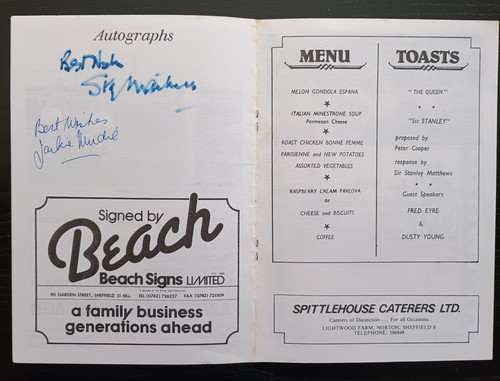 Autographs
Best Wishes
Stan Matthews
Best Wishes
Jackie Mudie
Signed by
Beach
Beach Signs LIMITED
GARDEN STREET, SHEFFIELD S1 4BJ. TEL (0742) FAX (0742)
a family business
generations ahead
MENU
MELON GONDOLA ESPANA
*
ITALIAN MINESTRONE SOUP
Parmesan Cheese
*
ROAST CHICKEN BONNE FEMME
PARISIENNE and NEW POTATOES
ASSORTED VEGETABLES
*
RASPBERRY CREAM PAVLOVA
or
CHEESE and BISCUITS
*
COFFEE
TOASTS
"THE QUEEN"
* *
"Sir STANLEY"
proposed by
Peter Cooper
response by
Sir Stanley Matthews
* *
Guest Speakers
FRED EYRE
&
DUSTY YOUNG
SPITTLEHOUSE CATERERS LTD.
Caterers of Distinction .... For all Occasions
LIGHTWOOD FARM, NORTON, SHEFFIELD 8
TELEPHONE: 396949